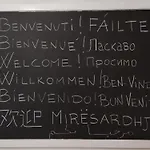 BENVENUTI! FÁILTE
BIENVENUE! Ласкаво
WELCOME! Просимо
WILLKOMMEN! BEN-VIND
BIENVENIDO! BUNVENI
欢迎 MIRËSARDHJ